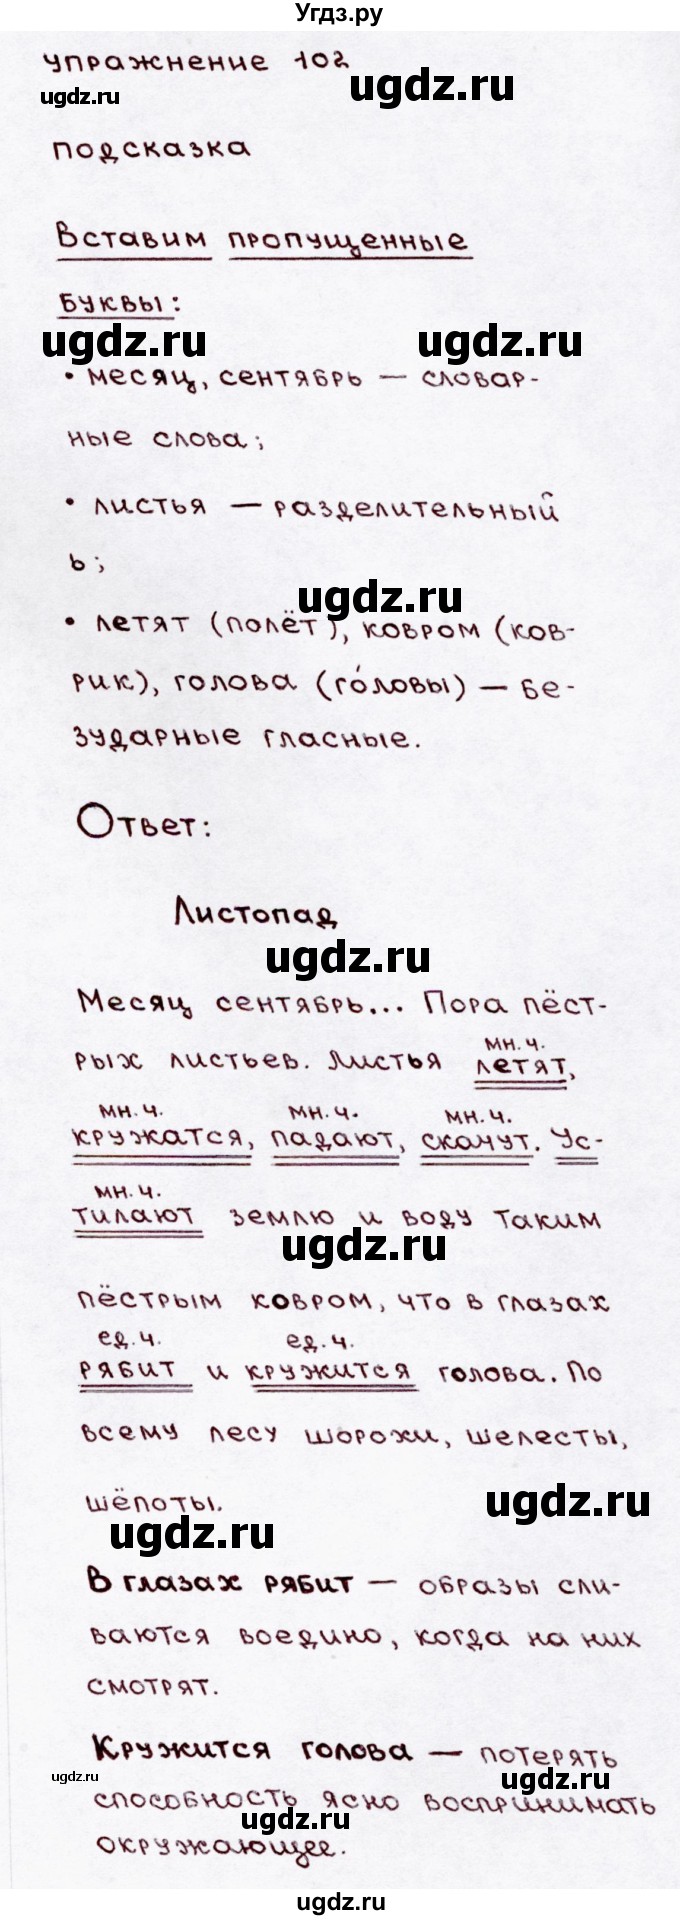 Угдз.ру
упражнение 102
ugdz.ru ugdz.ru
подсказка
Вставим пропущенные
буквы:
ugdz.ru ugdz.ru
• месяц, сентябрь — словар-
ные слова;
• листья — разделительный
ь;
ugdz.ru
• летят (полёт), ковром (ков-
рик), голова (го́ловы) — бе-
зударные гласные.
Ответ:
Листопад
ugdz.ru
Месяц сентябрь... Пора пёст-
мн.ч.
рых листьев. Листья летят,
мн.ч. мн.ч. мн.ч.
кружатся, падают, скачут. Ус-
мн.ч.
тилают землю и воду таким
ugdz.ru
пёстрым ковром, что в глазах
ед.ч. ед.ч.
рябит и кружится голова. По
всему лесу шорохи, шелесты,
шёпоты.
ugdz.ru
ugdz.ru
В глазах рябит — образы сли-
ваются воедино, когда на них
смотрят.
Кружится голова — потерять
ugdz.ru ugdz.ru
способность ясно воспринимать
ugdz.ru
окружающее.
ugdz.ru